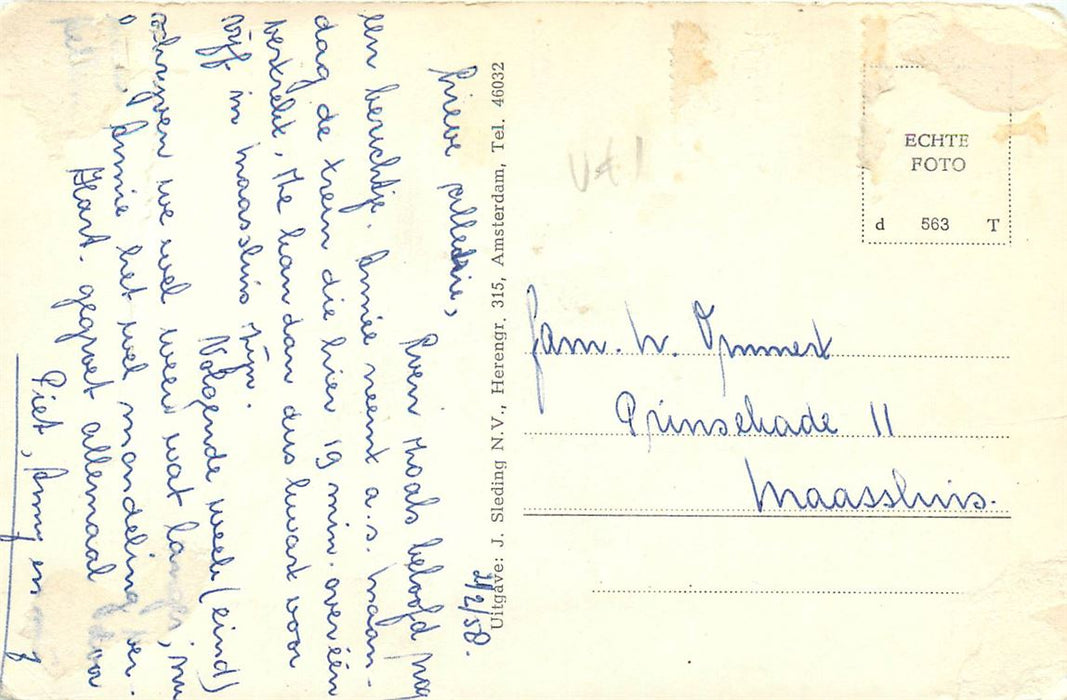 21/2/58.
Lieve allen,
Even zoals beloofd nog
een berichtje. Annie neemt a.s. maan-
dag de trein die hier 19 min. over één
vertrekt, ze kan dan dus kwart voor
vijf in Maassluis zijn.
Volgende week (eind)
schrijven we wel weer wat langer, nu
Annie het wel mondeling ver.
Hart. gegroet allemaal door
Piet, Anny en
Uitgave: J. Sleding N.V., Herengr. 315, Amsterdam, Tel. 46032
ECHTE
FOTO
d 563 T
Fam. W. Ommert
Prinsekade 11
Maassluis.